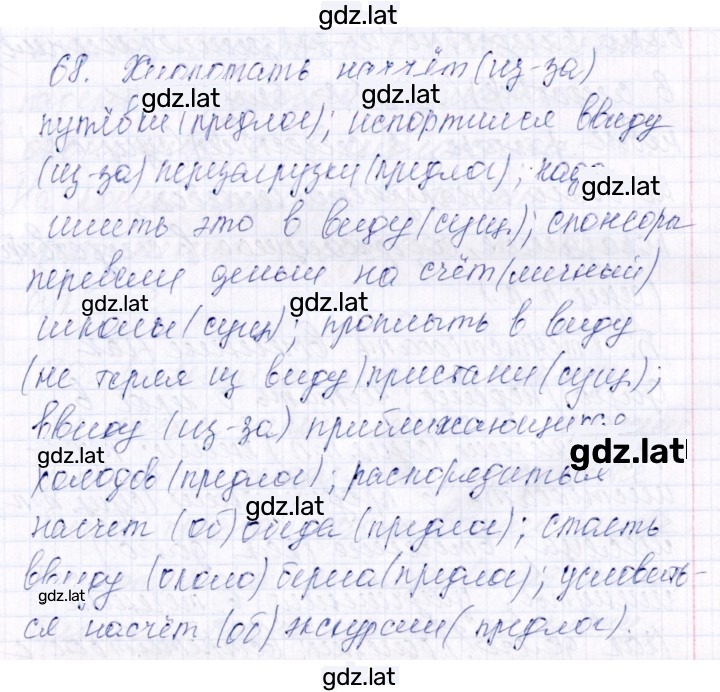 gdz.lat
68. Хлопотать насчёт (из-за)
gdz.lat gdz.lat
путёвки (предлог); испортился ввиду
(из-за) перезагрузки (предлог); надо
gdz.lat
иметь это в виду (сущ.); спонсора
перевели деньги на счёт (личный)
gdz.lat gdz.lat
школы (сущ.); проплыть в виду
(не теряя из виду) пристани (сущ.);
ввиду (из-за) приближающихся
gdz.lat gdz.lat
холодов (предлог); распорядиться
gdz.lat
насчет (об) обеда (предлог); стоять
ввиду (около) берега (предлог); условить-
gdz.lat
ся насчёт (об) экскурсии (предлог).
gdz.lat